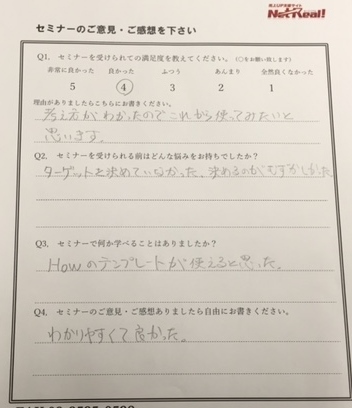 NetReal!
セミナーのご意見・ご感想を下さい
Q1. セミナーを受けられての満足度を教えてください。(○をお願い致します)
非常に良かった 良かった ふつう あんまり 全然良くなかった
5 4 3 2 1
理由がありましたらこちらにお書きください。
考え方がわかったのでこれから使ってみたいと
思います。
Q2. セミナーを受けられる前はどんな悩みをお持ちでしたか?
ターゲットを決めていなかった、決めるのがむずかしかった
Q3. セミナーで何か学べることはありましたか?
Howのテンプレートが使えると思った。
Q4. セミナーのご意見・ご感想ありましたら自由にお書きください。
わかりやすくて良かった。